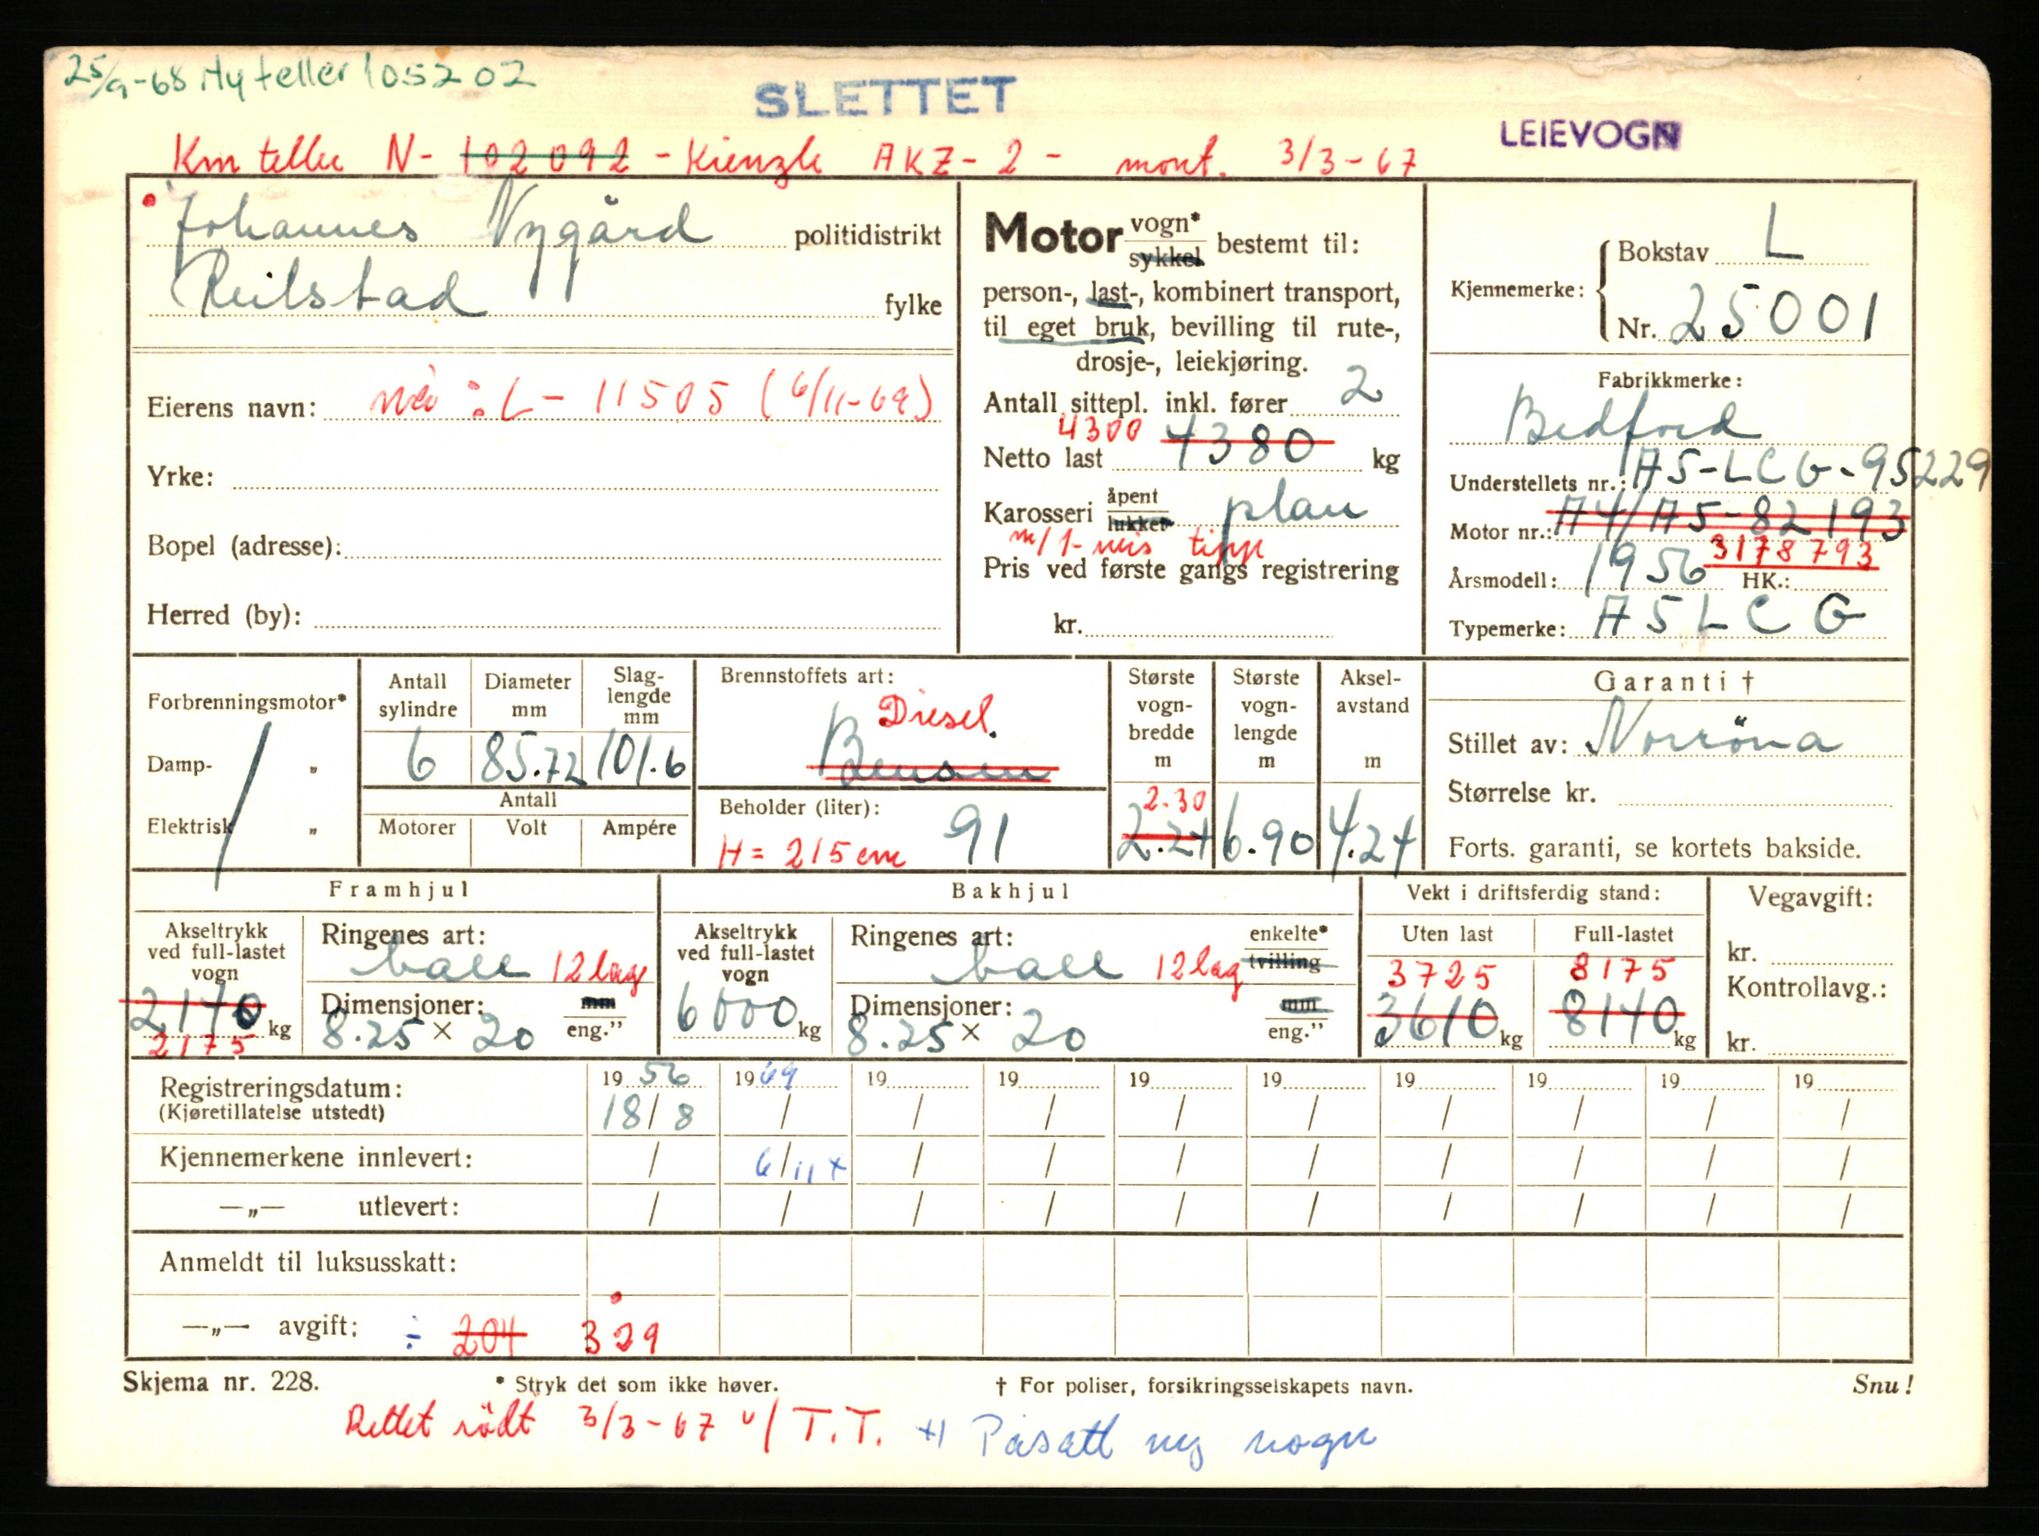 25/9-68 Ny teller 105202
SLETTET
LEIEVOGN
Km teller N- 102092 - Kienzle AKZ-2 - mont. 3/3-67
Johannes Nygård politidistrikt
Reilstad fylke
Eierens navn: nå: L- 11505 (6/11-69)
Yrke:
Bopel (adresse):
Herred (by):
Motor vogn* sykkel bestemt til:
person-, last-, kombinert transport,
til eget bruk, bevilling til rute-,
drosje-, leiekjøring.
Antall sittepl. inkl. fører 2
Netto last 4300 4380 kg
Karosseri åpent lukket plan
m/1-veis tipp
Pris ved første gangs registrering
kr.
Kjennemerke: Bokstav L
Nr. 25001
Fabrikkmerke:
Bedford
Understellets nr.: A5-LCG-95229
Motor nr.: A4/A5-82193
3178793
Årsmodell: 1956 HK.:
Typemerke: A5LCG
Forbrenningsmotor*
Damp- "
Elektrisk "
Antall sylindre 6
Diameter mm 85.72
Slag-lengde mm 101.6
Antall
Motorer Volt Ampére
Brennstoffets art:
Diesel.
Bensin
Beholder (liter): 91
H = 215 cm
Største vogn-bredde m 2.30 2.24
Største vogn-lengde m 6.90
Aksel-avstand m 4.24
Garanti †
Stillet av: Norröna
Størrelse kr.
Forts. garanti, se kortets bakside.
Framhjul
Akseltrykk ved full-lastet vogn 2140 kg
2175
Ringenes art: ball 12 lag
Dimensjoner: mm
8.25 × 20 eng."
Bakhjul
Akseltrykk ved full-lastet vogn 6000 kg
Ringenes art: ball 12 lag enkelte* tvilling
Dimensjoner: mm
8.25 × 20 eng."
Vekt i driftsferdig stand:
Uten last 3725 3610 kg
Full-lastet 8175 8140 kg
Vegavgift:
kr.
Kontrollavg.:
kr.
Registreringsdatum: 19 56 19 69 19 19 19 19 19 19 19 19
(Kjøretillatelse utstedt) 18/8 / / / / / / / / /
Kjennemerkene innlevert: / 6/11 + / / / / / / / /
—„— utlevert: / / / / / / / / / /
Anmeldt til luksusskatt:
—„— avgift: ÷ 204 329
Skjema nr. 228. * Stryk det som ikke høver. † For poliser, forsikringsselskapets navn. Snu!
Rettet rödt 3/3-67 v/ T.T. +) Påsatt ny vogn